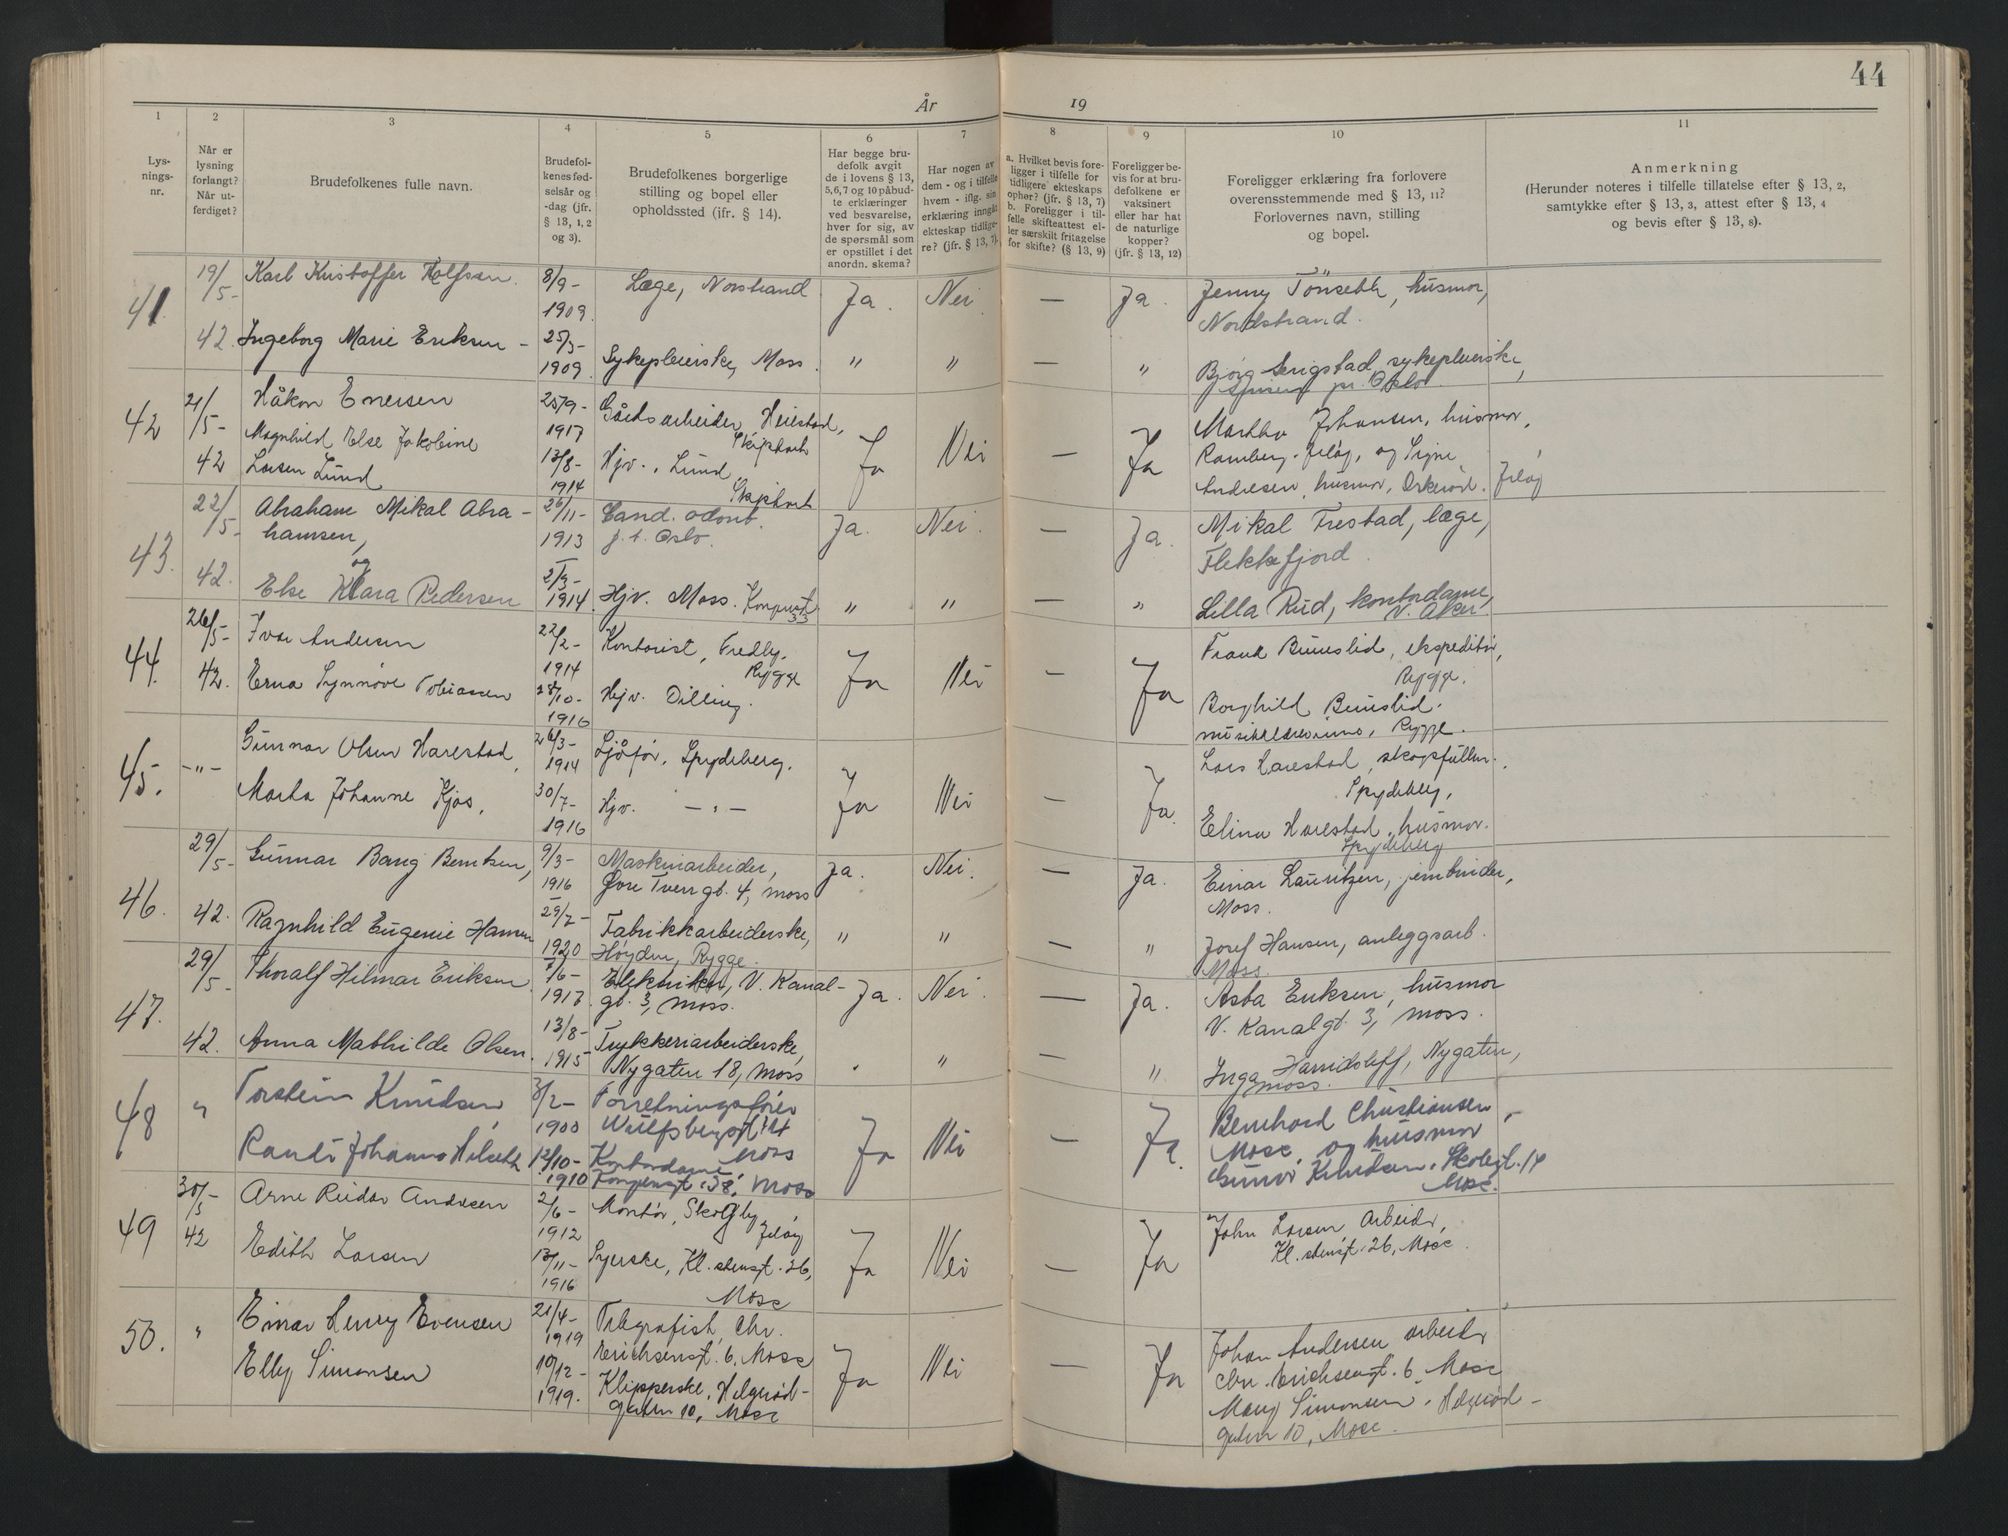 44
År 19
1 2 3 4 5 6 7 8 9 10 11
Lys-
nings-
nr.
Når er
lysning
forlangt?
Når ut-
ferdiget?
Brudefolkenes fulle navn.
Brudefol-
kenes fød-
selsår og
-dag (jfr.
§ 13, 1, 2
og 3).
Brudefolkenes borgerlige
stilling og bopel eller
opholdssted (ifr. § 14).
Har begge bru-
defolk avgit
de i lovens § 13,
5, 6, 7 og 10 påbud-
te erklæringer
ved besvarelse,
hver for sig, av
de spørsmål som
er opstillet i det
anordn. skema?
Har nogen av
dem - og i tilfelle
hvem - iflg. sin
erklæring inngått
ekteskap tidlige-
re? (jfr. § 13, 7).
a. Hvilket bevis fore-
ligger i tilfelle for
tidligere ekteskaps
ophør? (jfr. § 13, 7)
b. Foreligger i til-
felle skifteattest el-
ler særskilt fritagelse
for skifte? (§ 13, 9)
Foreligger be-
vis for at bru-
defolkene er
vaksinert
eller har hat
de naturlige
kopper?
(jfr. § 13, 12)
Foreligger erklæring fra forlovere
overensstemmende med § 13, 11?
Forlovernes navn, stilling
og bopel.
Anmerkning
(Herunder noteres i tilfelle tillatelse efter § 13, 2,
samtykke efter § 13, 3, attest efter § 13, 4
og bevis efter § 13, 8).
41. 19/5- 42. Karl Kristoffer 8/9- 1909. Læge, Norstrand Ja. Nei. — Ja. Jenny Tönseth, husmor,
Nordstrand.
Ingeborg Marie Eriksen - 25/3- 1909. Sykepleierske, Moss. " " — " Bjørg sykepleierske,
pr. Oslo.
42 21/5- 42 Håkon Enersen 25/9- 1917 Gårdsarbeider, Heiestad,
Skiptvet
Ja Nei Ja Martha Johansen, husmor,
Magnhild Else Jakobine
Larsen Lund 13/8- 1914 Hjv., Lund,
Skiptvet
Ramberg, Jeløy, og Signe
Andresen, husmor, Orkerød. Jeløy
43. 22/5- 42. Abraham Mikal Abra-
hamsen, 26/11- 1913 Cand. odont.
f. t. Oslo. Ja. Nei. Ja. Mikal Frestad, læge,
Flekkefjord.
og
Else Klara Pedersen 2/3- 1914. Hjv. Moss. 33 " " — " Lilla Rud, kontordame,
V. Aker
44. 26/5- 42. Ivar Andersen 22/2- 1914 Kontorist, Fredly,
Rygge
Ja Nei — Ja Frank Bunslid, ekspeditør,
Rygge.
Erna Synnöve Tobiassen 28/10- 1916 Hjv. Dilling.
Borghild Bunslid.
musikklærerinne, Rygge.
45. -"- Gunnar Olsen Harestad, 26/3- 1914 Sjåför, Spydeberg. Ja Nei — Ja. Lars Harestad, skogsfullm.,
Spydeberg,
Marta Johanne Kjos. 30/7- 1916 Hjv. -"-
Elina Harestad, husmor.
Spydeberg
46. 29/5- 42. Gunnar Bang Berntsen, 9/3- 1916 Maskinarbeider,
Øvre Tverrgt. 4, Moss Ja. Nei. — Ja. Einar Lauritzen, jernbinder,
Moss.
Ragnhild Eugenie Hansen 29/7- 1920 Fabrikkarbeiderske,
Høyden, Rygge. " " — " Josef Hansen, anleggsarb.
Moss.
47. 29/5- 42. Thoralf Hilmar Eriksen 7/6- 1917. Elektriker, V. Kanal-
gt. 3, Moss. Ja. Nei. — Ja. Asta Eriksen, husmor
V. Kanalgt. 3, Moss.
Anna Mathilde Olsen. 13/8- 1915 Trykkeriarbeiderske,
Nygaten 18, Moss " — " Inga Nygaten,
Moss.
48 " Torstein Knudsen, 3/2- 1900 Forretningsfører
Wulfsbergsgt. 14
Moss Ja Nei — Ja. Bernhard Christiansen,
Moss, og husmor
Randi Johanne Helseth 12/10- 1910 Kontordame,
Kongensgt. 38, Moss
Gunvor Knudsen, Skolegt. 14
Moss.
49 30/5- 42 Arne Reidar Andresen 2/6- 1912 Montör, Skogly,
Jeløy Ja Nei — Ja John Larsen, Arbeider,
Kl. stensgt. 26, Moss.
Edith Larsen 13/11- 1916 Syerske, Kl. stensgt. 26,
Moss
50. " Einar Henry Evensen 21/4- 1919 Telegrafist, Chr.
Erichsensgt. 6, Moss Ja Nei — Ja Johan Andersen arbeider
Chr. Erichsensgt. 6, Moss
Elly Simonsen 10/12- 1919. Klipperske, Helgerød-
gaten 10, Moss
Mary Simonsen, Helgerød-
gaten 10, Moss.